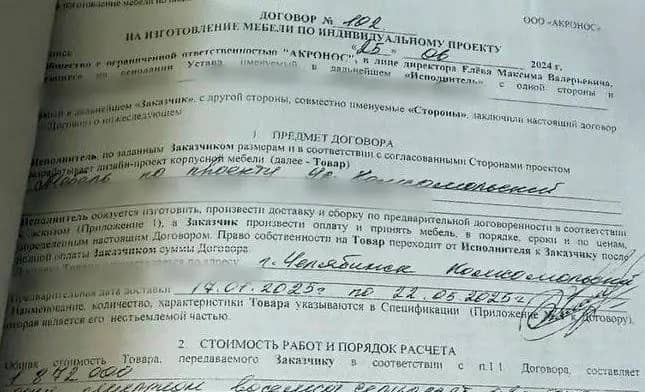 ООО «АКРОНОС»
ДОГОВОР № 102
НА ИЗГОТОВЛЕНИЕ МЕБЕЛИ ПО ИНДИВИДУАЛЬНОМУ ПРОЕКТУ
«25» 06 2024 г.
Общество с ограниченной ответственностью "АКРОНОС", в лице директора Елёва Максима Валерьевича,
на основании Устава, именуемый в дальнейшем «Исполнитель» с одной стороны и
в дальнейшем «Заказчик», с другой стороны, совместно именуемые «Стороны», заключили настоящий договор
о нижеследующем
1 ПРЕДМЕТ ДОГОВОРА
Исполнитель, по заданным Заказчиком размерам и в соответствии с согласованными Сторонами проектом
разрабатывает дизайн-проект корпусной мебели (далее - Товар)
Мебель по проекту Комсомольский
Исполнитель обязуется изготовить, произвести доставку и сборку по предварительной договоренности в соответствии
с эскизом (Приложение 1), а Заказчик произвести оплату и принять мебель, в порядке, сроки и по ценам,
определенным настоящим Договором. Право собственности на Товар переходит от Исполнителя к Заказчику после
полной оплаты Заказчиком суммы Договора
по адресу г. Челябинск Комсомольский
Предварительная дата доставки 17.01.2025г по 22.05.2025г
Наименование, количество, характеристики Товара указываются в Спецификации (Приложение к Договору),
которая является его неотъемлемой частью.
2. СТОИМОСТЬ РАБОТ И ПОРЯДОК РАСЧЕТА
Общая стоимость Товара, передаваемого Заказчику в соответствии с п.1.1. Договора, составляет
872 000